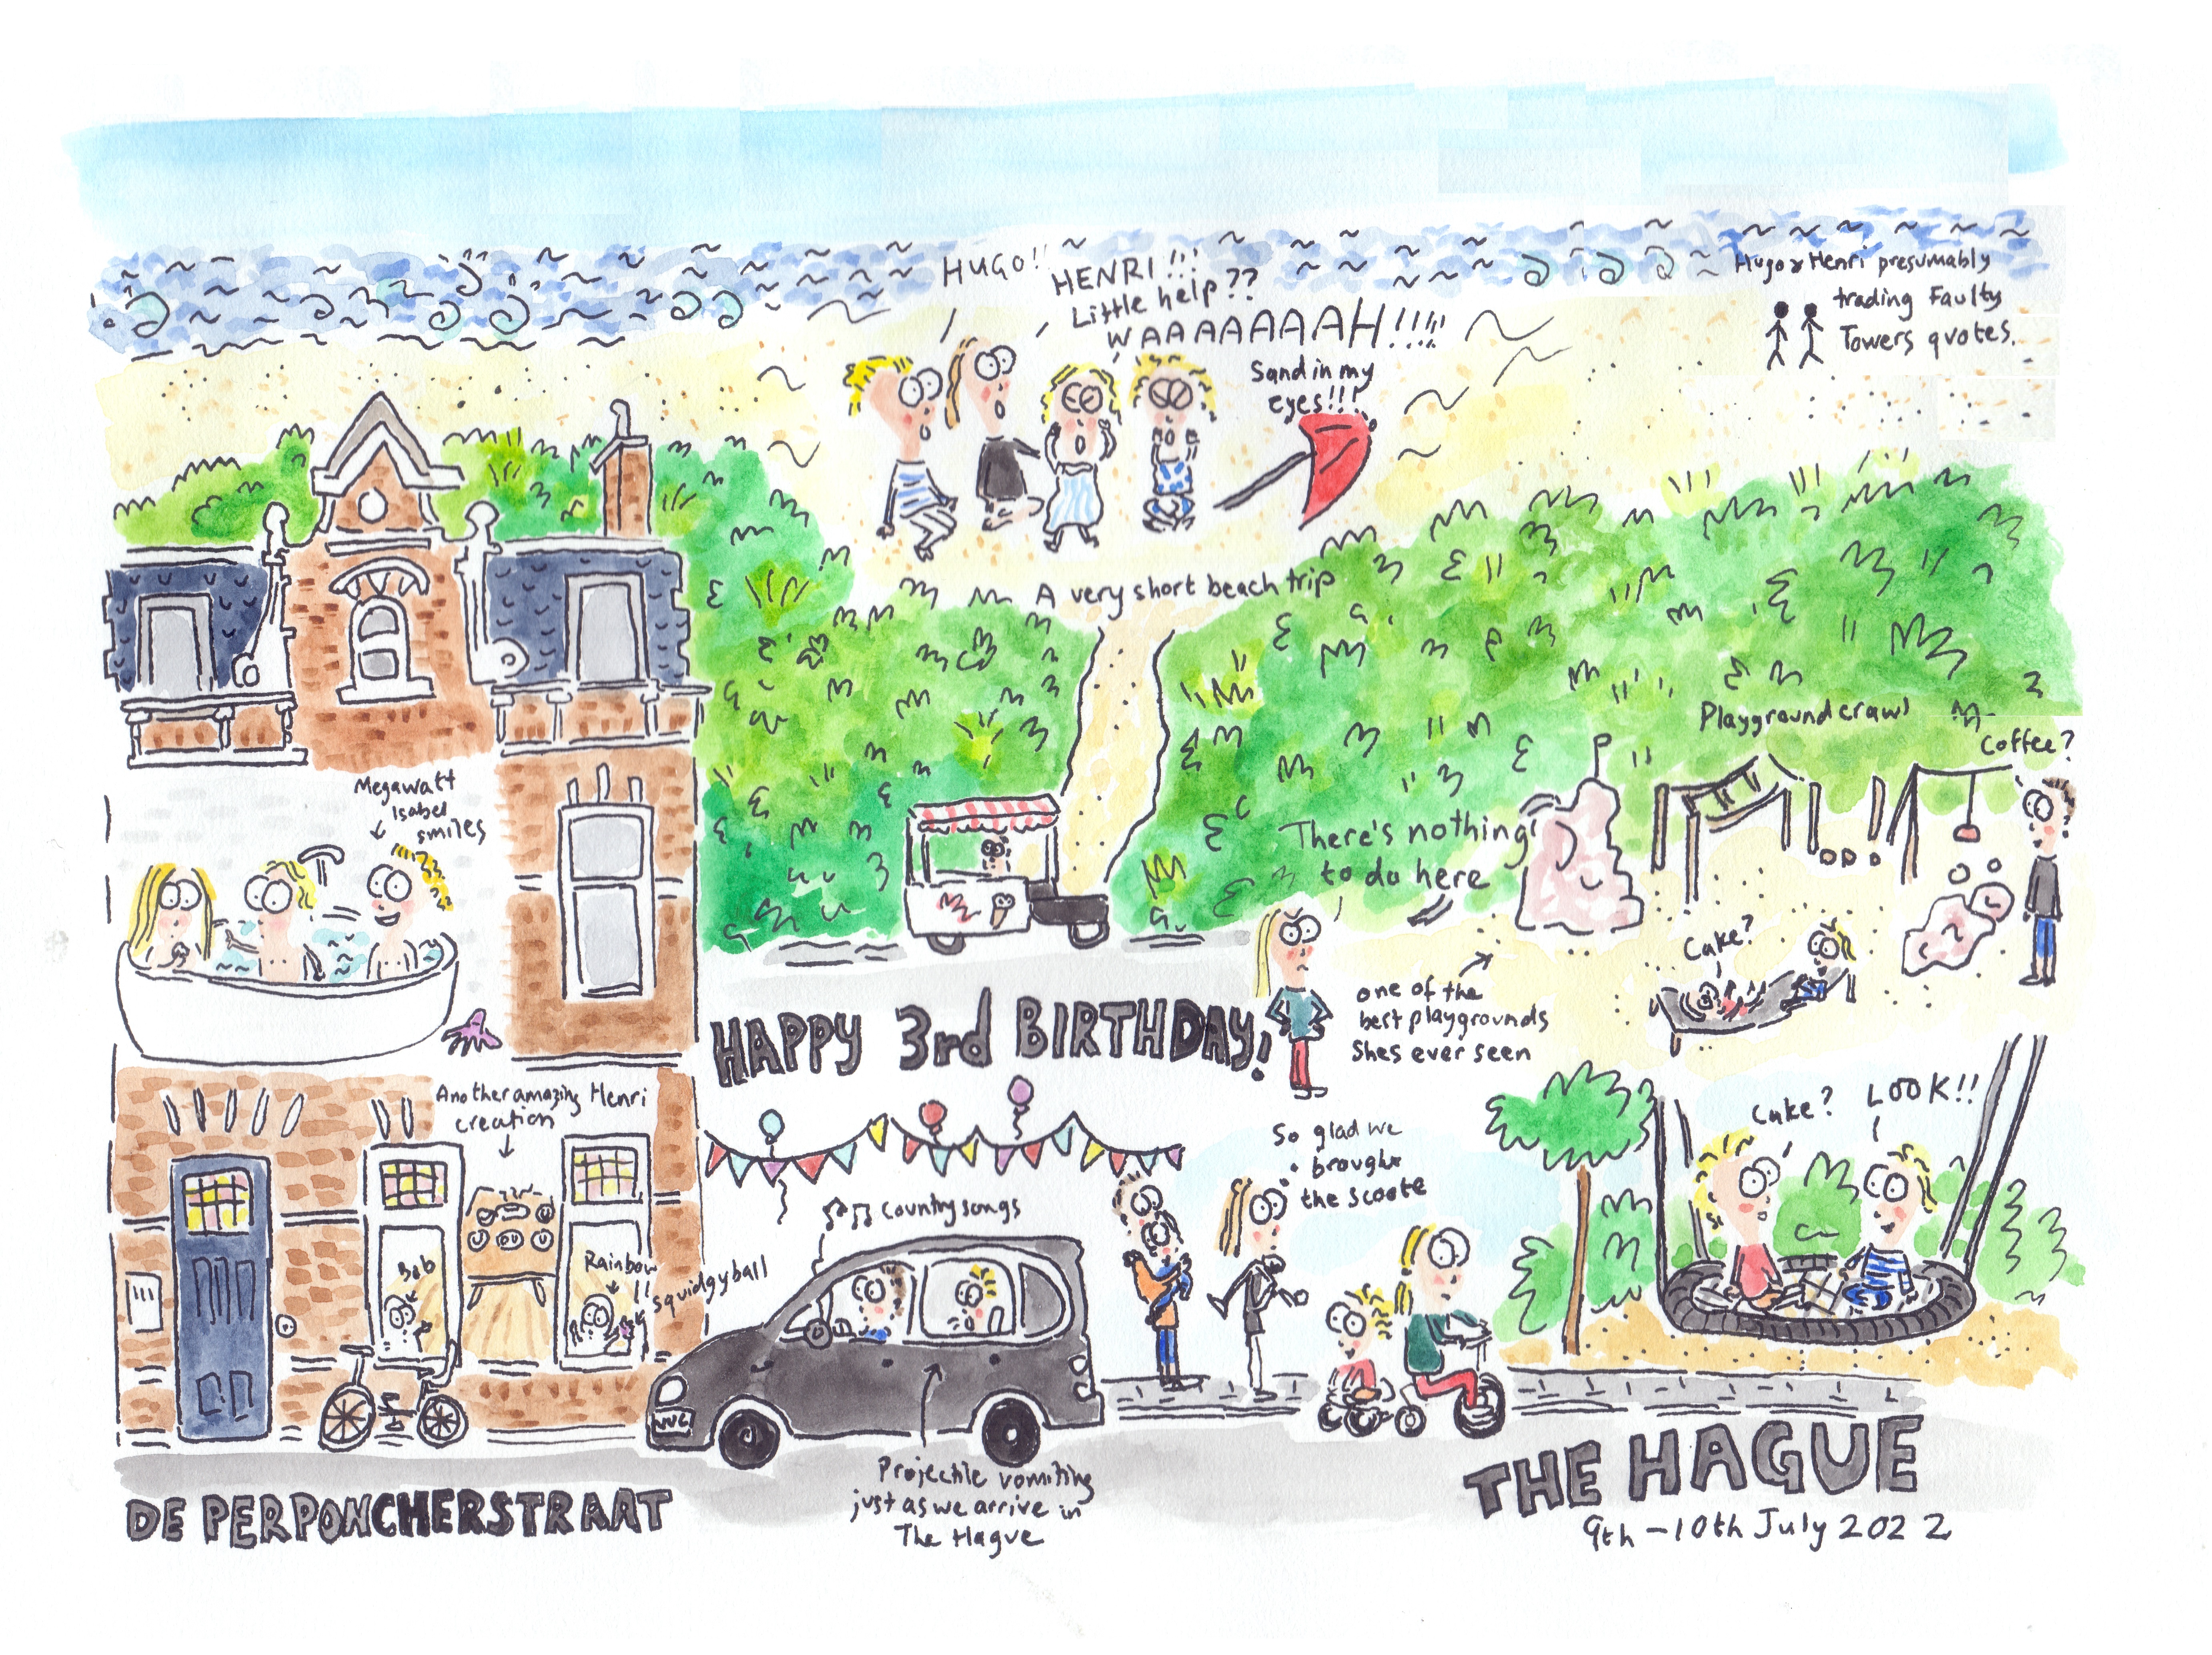 HUGO!!
HENRI!!!
Little help??
WAAAAAAAH!!!!
Sand in my
eyes!!!
Hugo & Henri presumably
trading Faulty
Towers quotes.
A very short beach trip
Playground crawl
Coffee?
Megawatt
Isabel
smiles
There's nothing
to do here
Cake?
one of the
best playgrounds
shes ever seen
HAPPY 3rd BIRTHDAY!
Another amazing Henri
creation
Cake?
LOOK!!
So glad we
brought
the scoote
Country songs
Bob
Rainbow
squidgy ball
Projectile vomiting
just as we arrive in
The Hague
DE PERPONCHERSTRAAT
THE HAGUE
9th - 10th July 2022